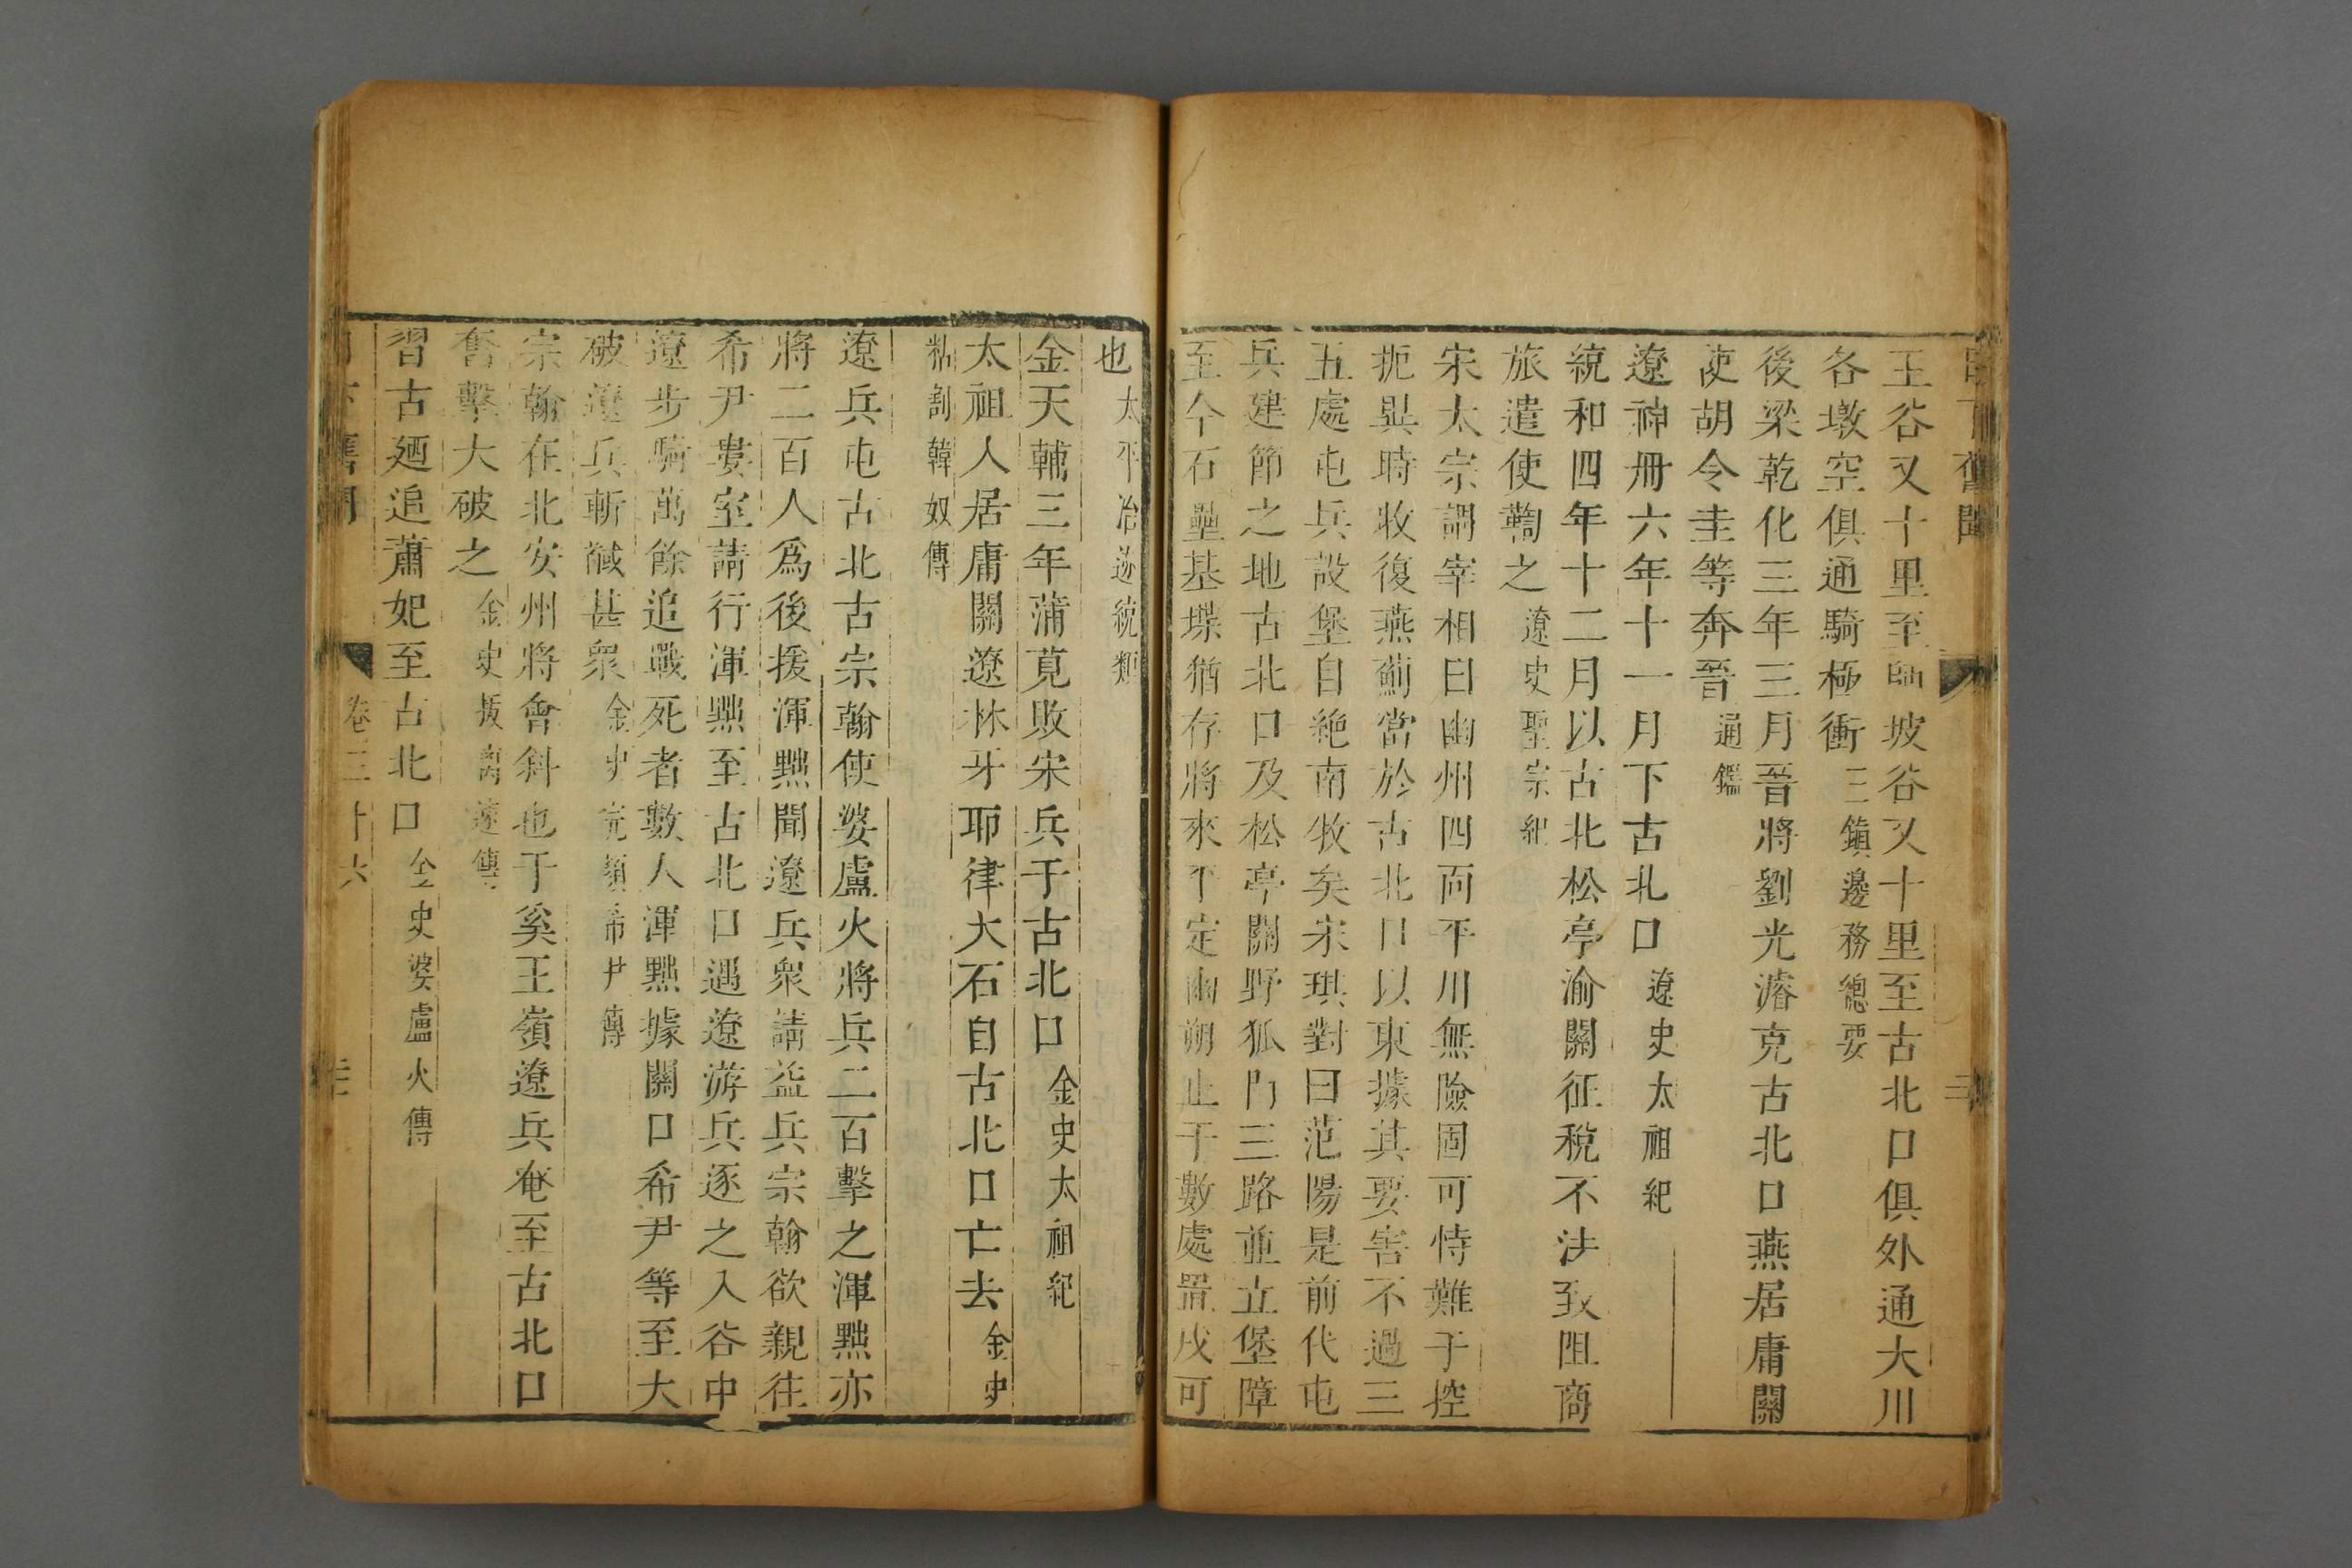 王谷又十里至師坡谷又十里至古北口俱外通大川
各墩空俱通騎極衝三鎮邊務總要
後梁乾化三年三月晉將劉光濬克古北口燕居庸關
使胡令圭等奔晉通鑑
遼神冊六年十一月下古北口遼史太祖紀
統和四年十二月以古北松亭渝關征稅不法致阻商
旅遣使鞫之遼史聖宗紀
宋太宗謂宰相曰幽州四面平川無險固可恃難于控
扼異時收復燕薊當於古北口以東據其要害不過三
五處屯兵設堡自絶南牧矣宋琪對曰范陽是前代屯
兵建節之地古北口及松亭關野狐門三路並立堡障
至今石壘基堞猶存將來平定幽朔止于數處置戍可
也太平治蹟統類
金天輔三年蒲莧敗宋兵于古北口金史太祖紀
太祖入居庸關遼林牙耶律大石自古北口亡去金史
粘割韓奴傳
遼兵屯古北古宗翰使婆盧火將兵二百擊之渾黜亦
將二百人爲後援渾黜聞遼兵衆請益兵宗翰欲親往
希尹婁室請行渾黜至古北口遇遼游兵逐之入谷中
遼步騎萬餘追戰死者數人渾黜據關口希尹等至大
破遼兵斬馘甚衆金史完顏希尹傳
宗翰在北安州將會斜也于奚王嶺遼兵奄至古北口
奮擊大破之金史拔离速傳
習古廼追蕭妃至古北口金史婆盧火傳
日下舊聞 卷三十六